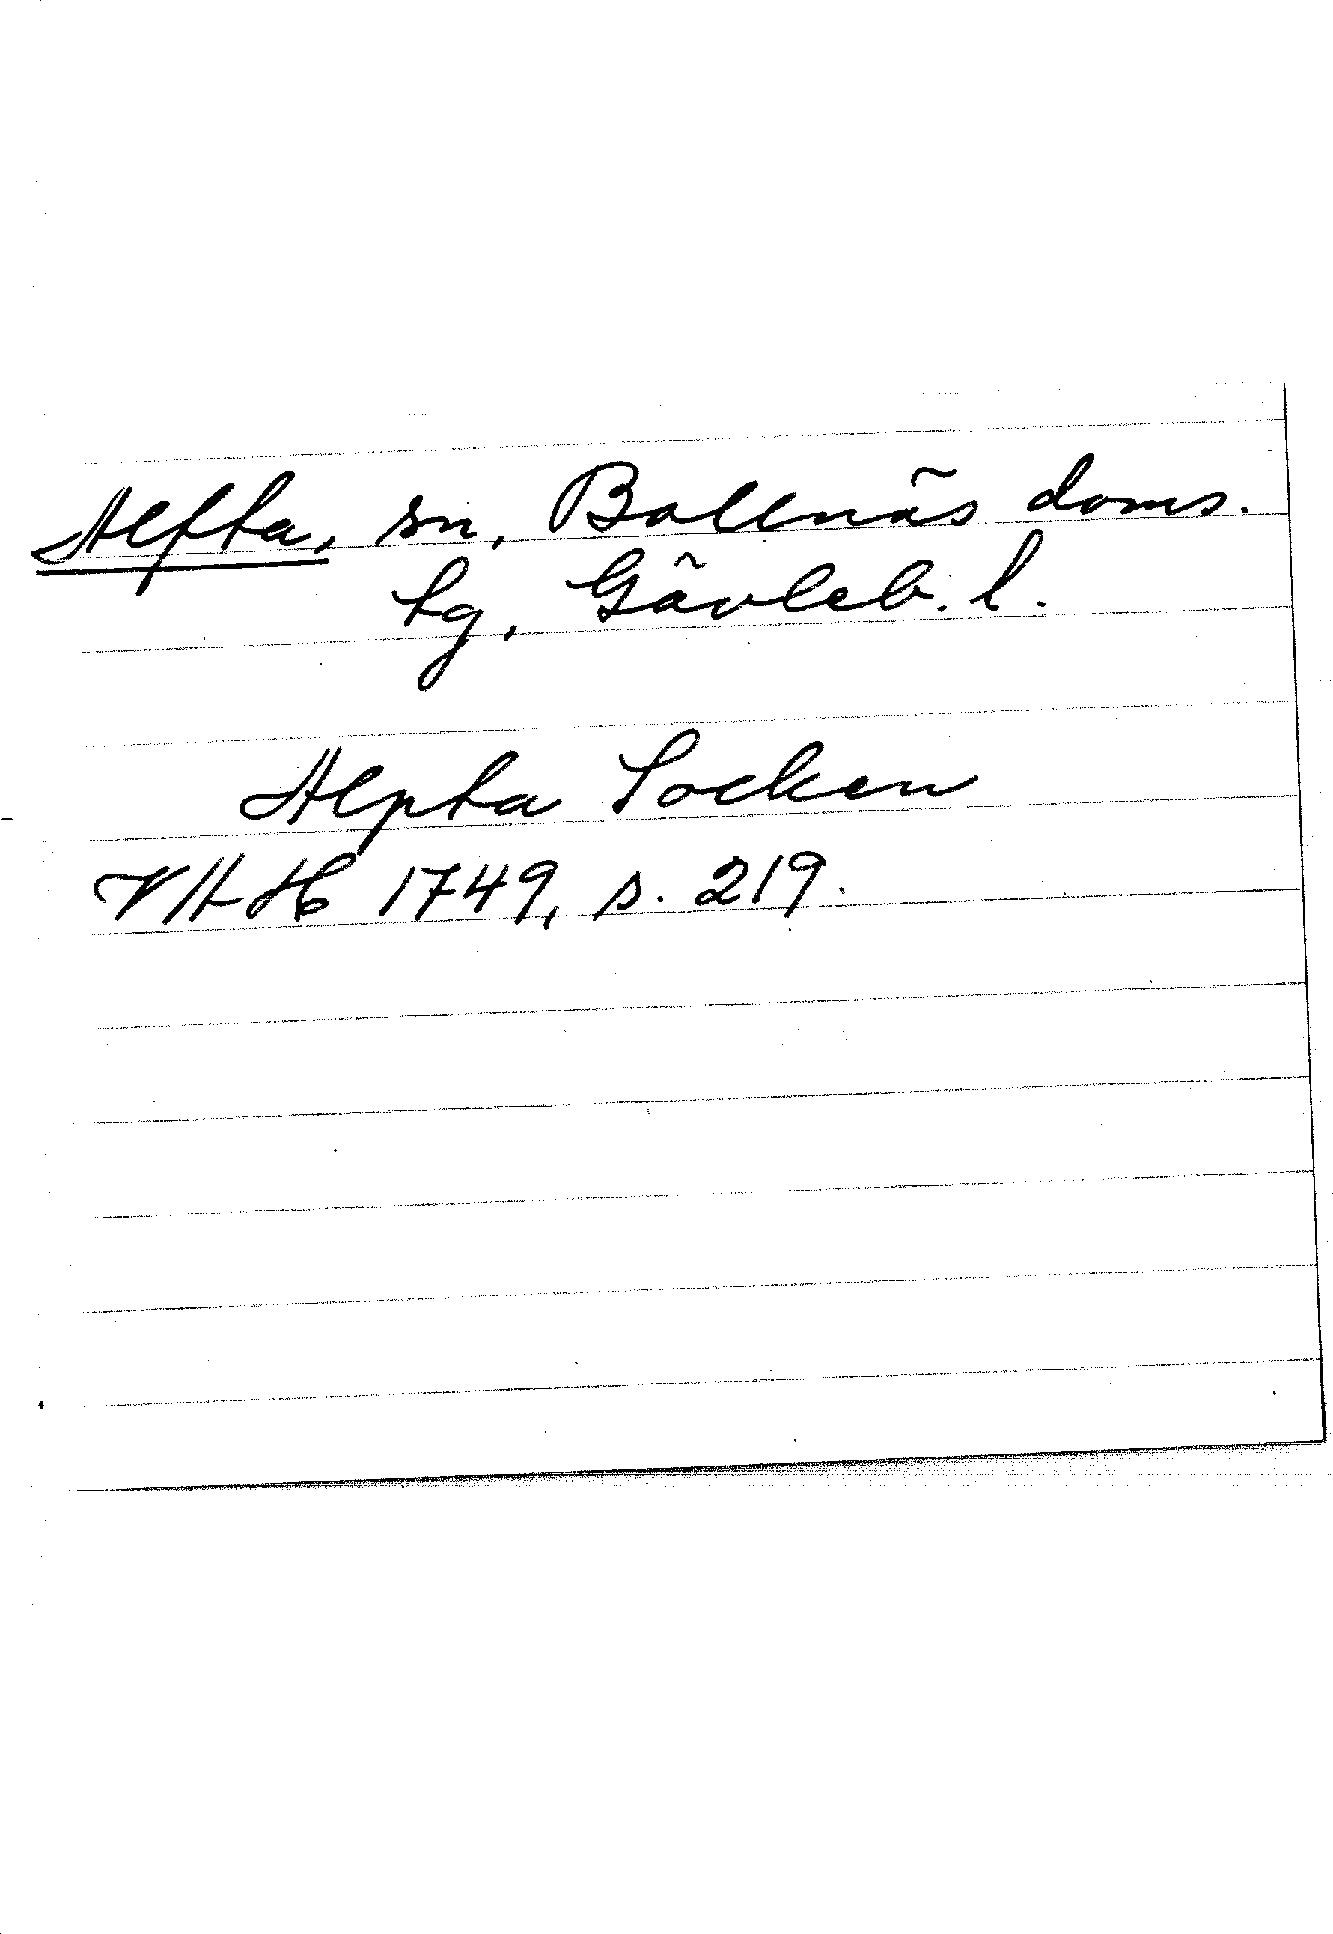 Alfta, sn, Bollnäs doms.
tg, Gävleb. l.
Alpta Socken
VHAH 1749, s. 219.